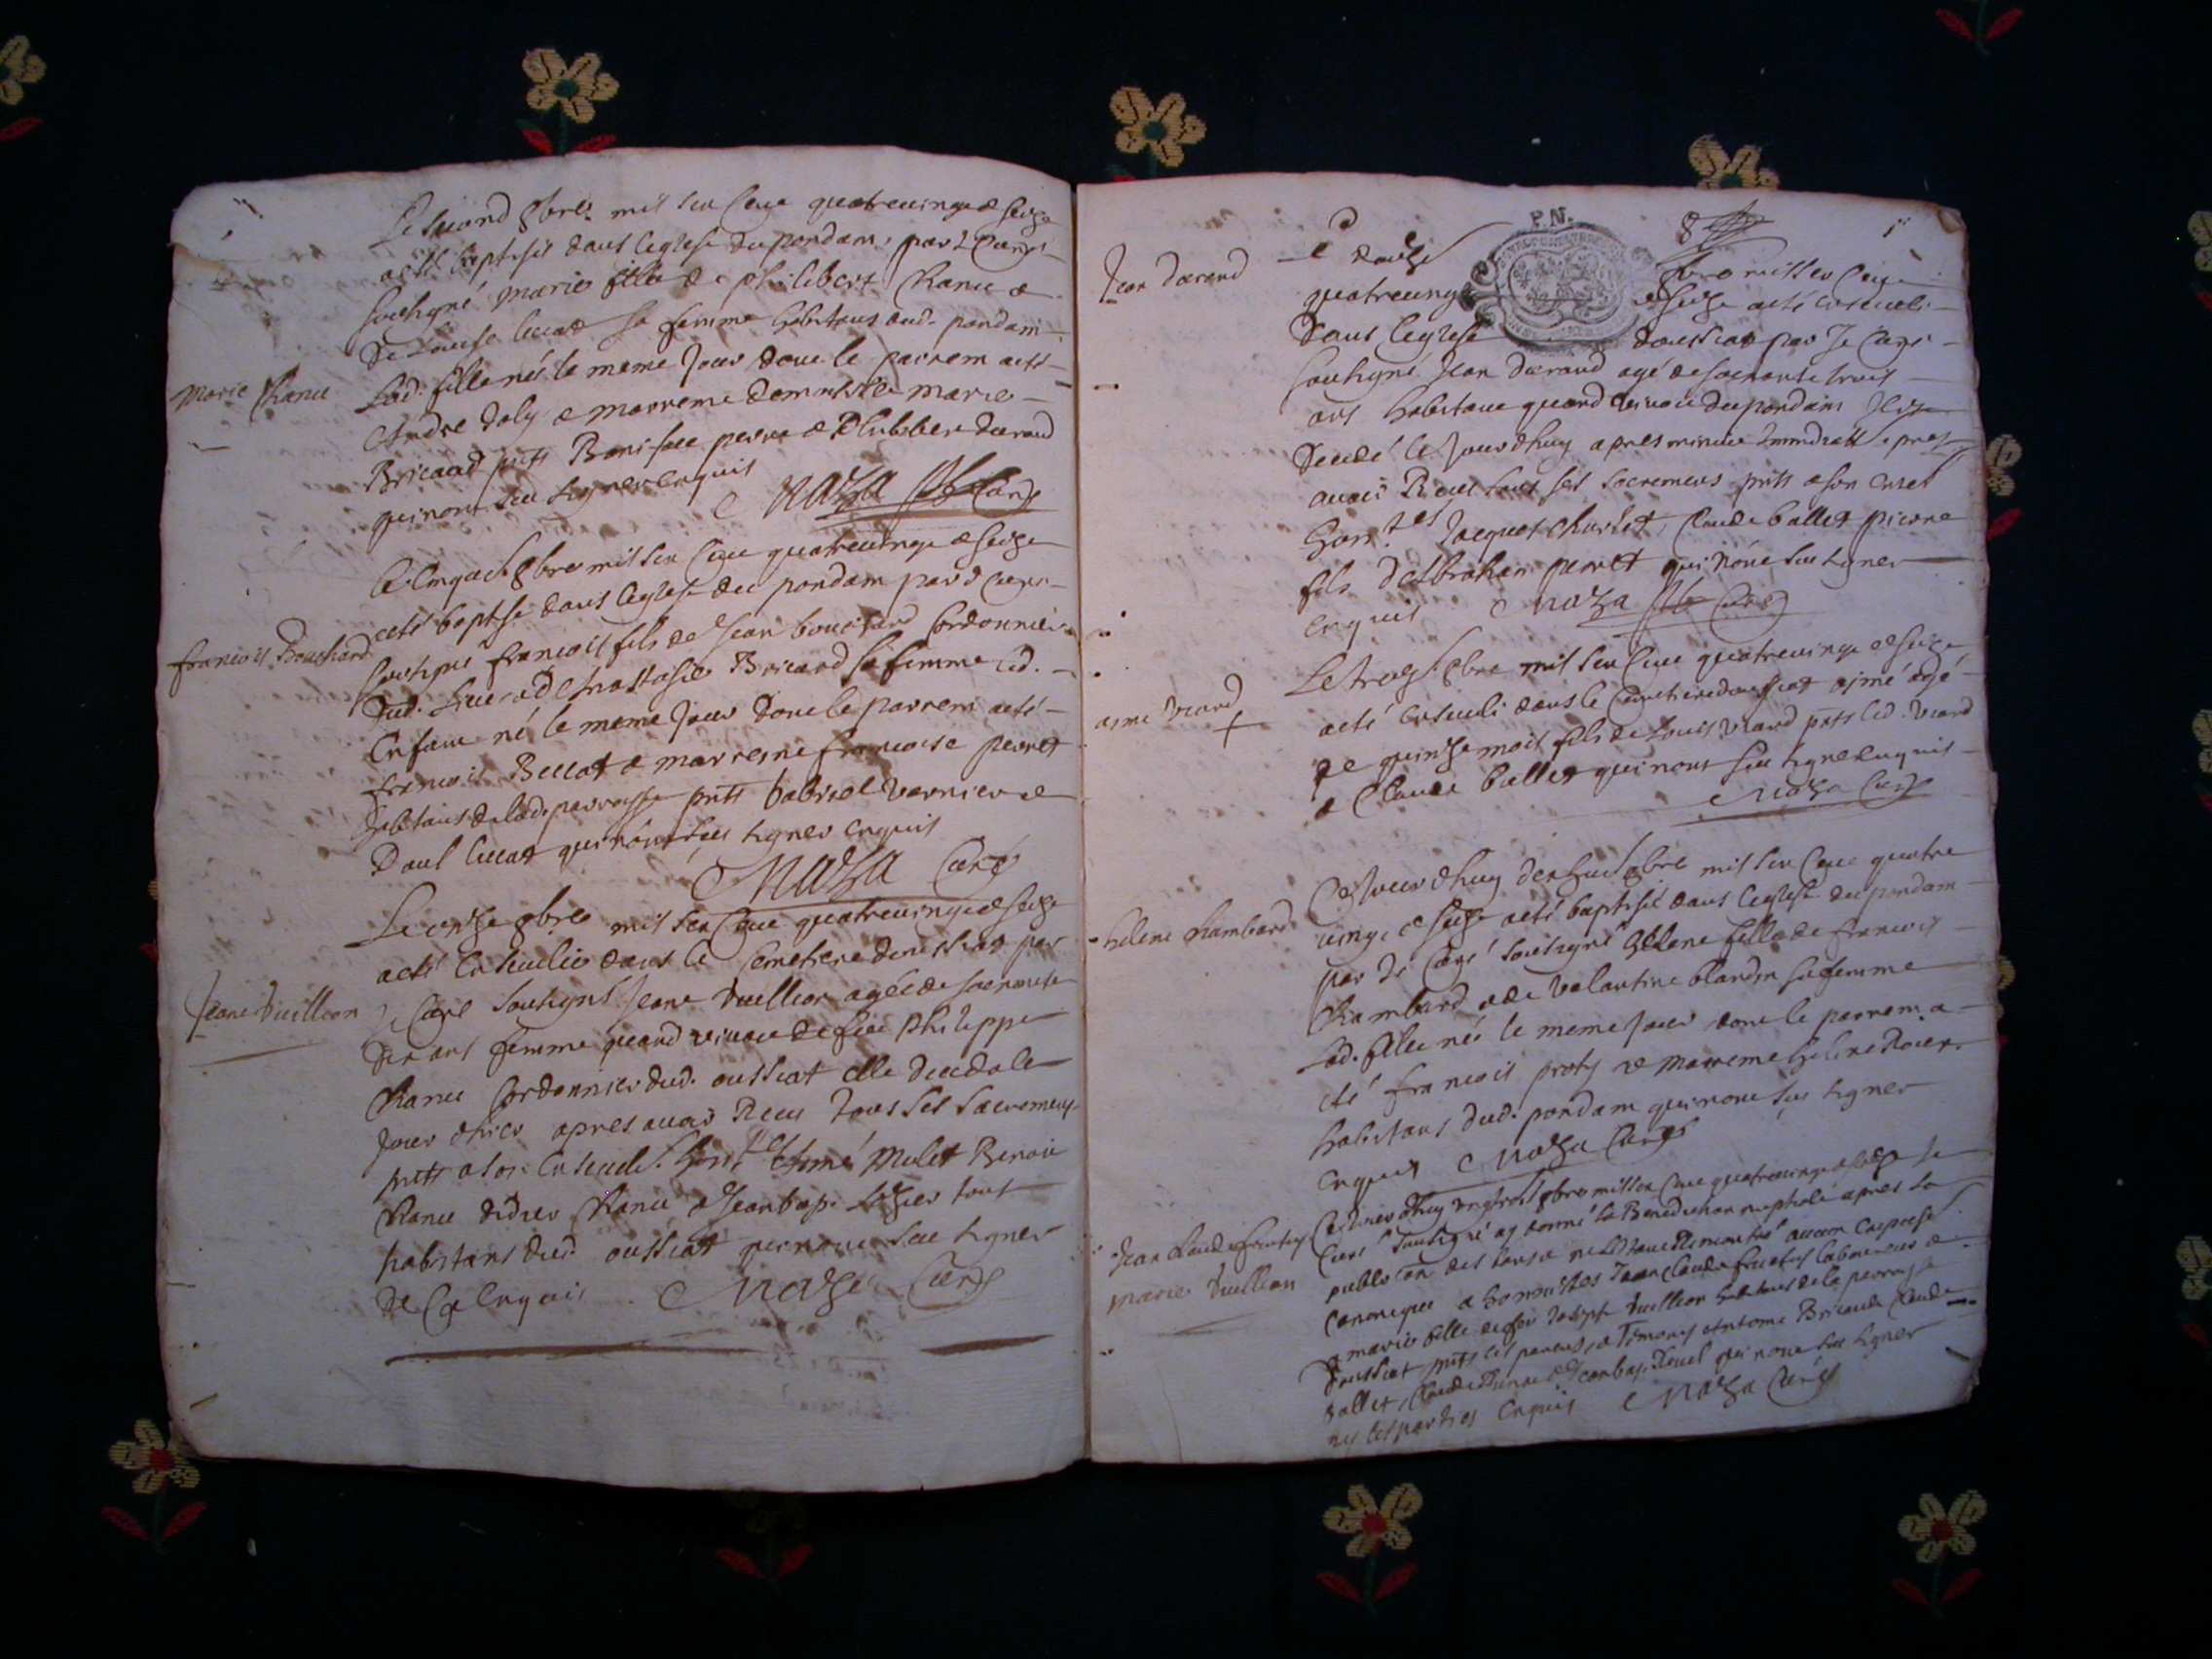 Le second 9bre mil six cent quatrevingt & seize
a esté baptisée dans leglise du pondain par J Curé
soubsigné marie fille de philibert Chanu &
de Louise lucat sa femme habitans dud. pondain
Marie Chanu
Lad. fille née le meme Jour dont le parrein a esté
Andre Joly & marreine demoiselle marie
Bricaud pnts Boniface perra & Philibert durand
qui nont sceu signer enquis
Maza Curé
Le Cinquie. 9bre mil six cent quatrevingt & seize
a esté baptisé dans leglise du pondain par J Curé
francois Bouchard
soubsigné francois fils de Jean bouchard Cordonnier
dud. lieu & d'Anastasie Bricard sa femme led.
Enfant né le meme Jour dont le parrein a esté
francois Beccat & marreine francoise perret
habitans de lad. parroisse pnts Gabriel varnier &
Paul lucat qui nont sceu signer enquis
Maza Curé
Le onze 9bre mil six cent quatrevingt & seize
a esté Enseveli dans le Cemetiere doussiat par
Jeane Vuillion
J Curé soubsigné Jeane vuillion agée de soixante
dix ans femme quand vivait de feu Philippe
Chanu Cordonnier dud. oussiat elle deceda le
Jour dhier apres avoir Receu tous les sacremens
pnts a son Ensevel. hon.tes Aimé Mulet Benoit
Chanu didier Chanu & Jean bap. tous
habitans dud. oussiat qui nont sceu signer
de Ce Enquis Maza Curé
8
P.N.
Jean durand
Le douze 9bre mil six Cent
quatrevingt & seize a esté Enseveli
dans leglise doussiat par Je Curé
soubsigné Jean durand agé de soixante trois
ans habitant quand vivait du pondain Il est
decedé Ce Jourdhuy apres minuit Immediatt apres
avoir Receu tous ses sacremens pnts a son Ensel
hon.tes Jacques Churlet, Claude ballet pierre
fils d'Abraham perret qui nont sceu signer
enquis Maza Curé
Le treize 9bre mil six Cent quatrevingt & seize
aimé viard
a esté Enseveli dans le Cemetiere doussiat aimé agé
de quinze mois fils de Louis viard pnts led. viard
& Claude ballet qui nont sceu signer enquis
Maza Curé
Cejourdhuy dixhuit 9bre mil six Cent quatre
helene Chambard
vingt & seize a esté baptisée dans leglise du pondain
par Je Curé soubsigné helene fille de francois
Chambard & de valantine blandin sa femme
Lad. fille née le meme Jour dont le parrein a
esté francois prost & marreine helene
habitans dud. pondain qui nont sceu signer
enquis Maza Curé
Cejourdhuy vingttrois 9bre mil six Cent quatrevingt & seize Je
Jean Claude
Curé soubsigné ay donné la Benediction nuptiale apres la
publi.on des bans & ne sestant Remontré aucun Empeschet
Marie Vuillion
Canonique a honnestes Jean Claude laboureur &
a marie fille de feu Joseph vuillion habitans de la parroisse
doussiat pnts les parens & Temoins Antoine Bricaud Claude
ballet, Claude & Jean bap. qui nont sceu signer
ny les parties Enquis Maza Curé